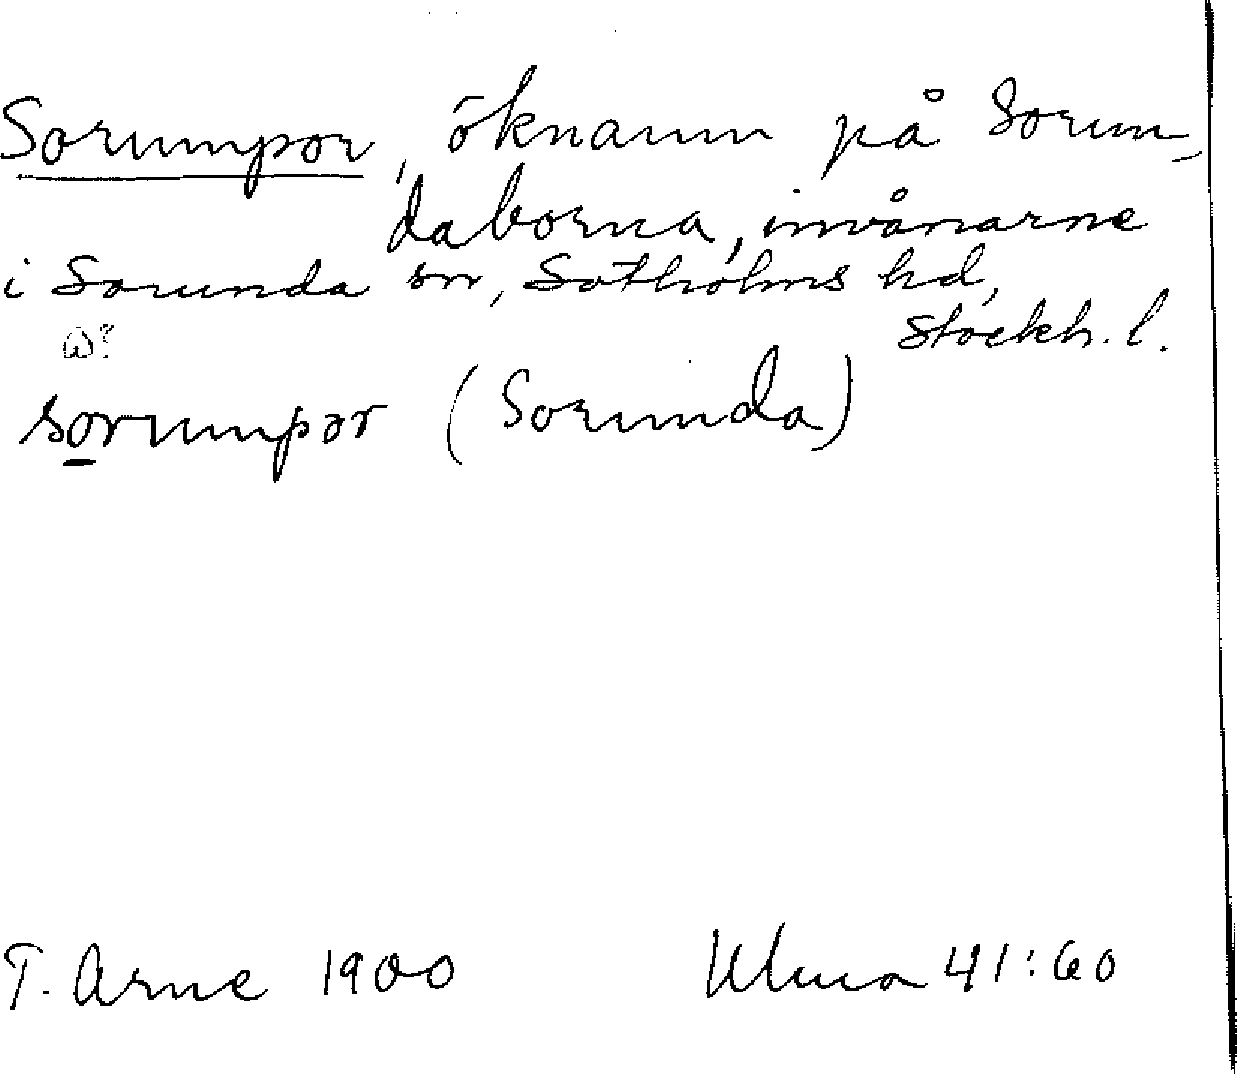 Sorumpor, öknamn på Sorun-
daborna, invånarne
i Sorunda sn, Sotholms hd,
Stockh. l.
ω?
sorumpor (Sorunda)
T. Arne 1900 Ulma 41:60